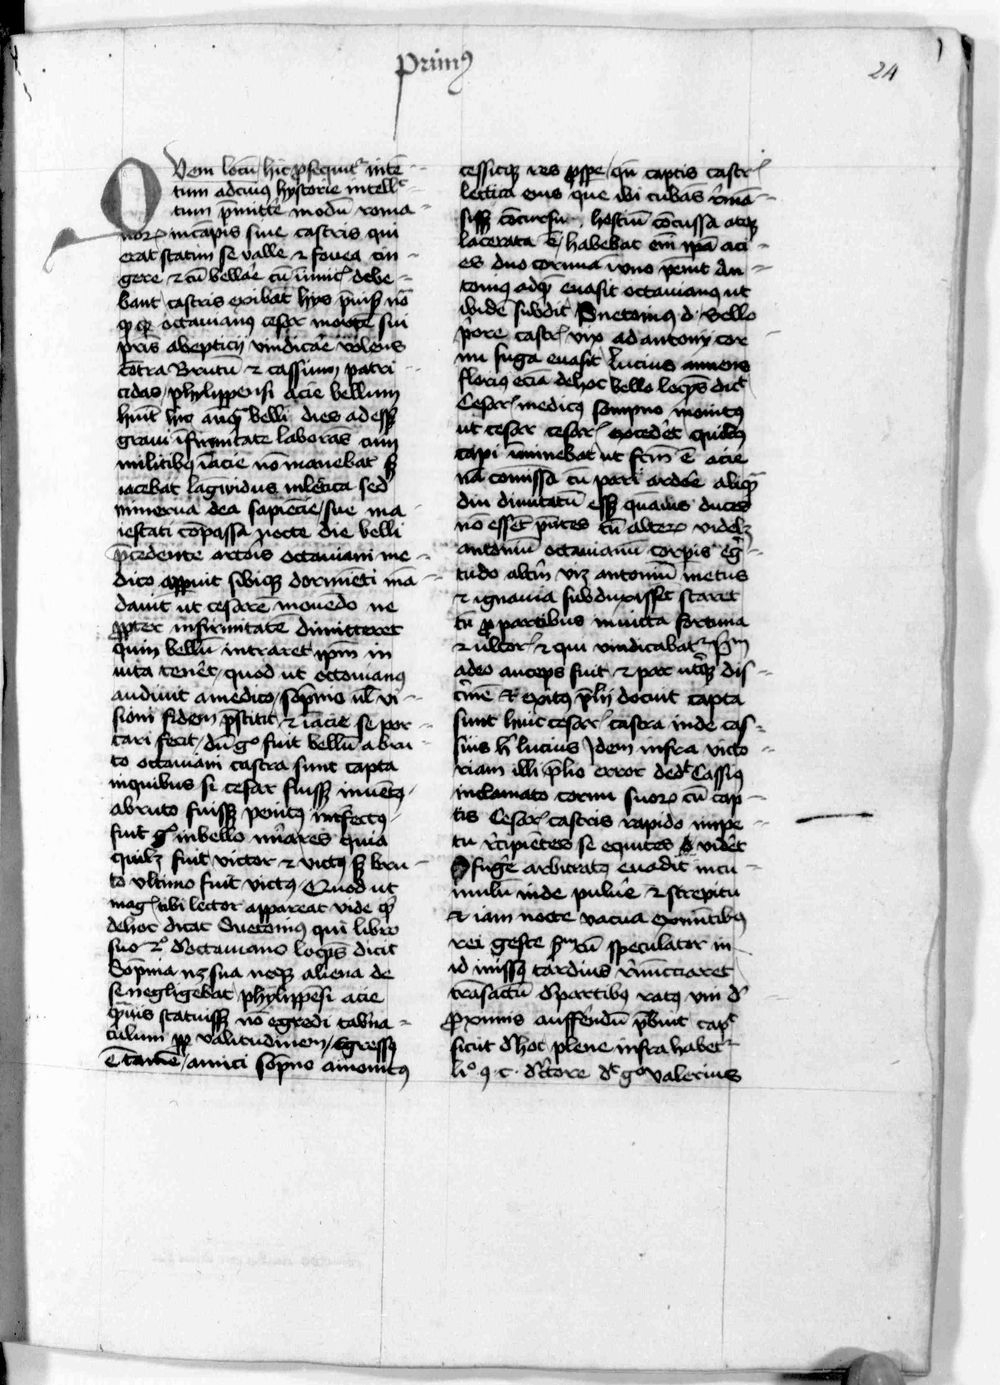 Primꝰ
24
Quem locū hic ꝓsequit᷑ inte-
tum ad cuiꝰ hystorie intell̄c
tum p̄mitte modū roma-
noꝝ in capis siue castris qui
erāt statim se valle ⁊ fouea cin-
gere ⁊ cū bellāe cū inimic debe-
bant castris exibāt hys p̄uisꝫ nō
octauianus cesar mortē sui
pris adepticij vindicāe volens
cōtra Brutū ⁊ cassium patri-
cidas phylippensi acie bellum
huīt hic belli dies adessꝫ
graui īfirmitate laborās cum
militibꝰ ī acie nō manebat sꝫ
iacebat lāgwidus in lectica sed
minerua dea sapiēcie sue ma-
iestati cōpassa nocte die belli
p̄cedente octauiani me-
dico apꝑuit sibiqꝫ dormiēti mā-
dauit ut cesarē monēdo ne
ꝓpter infirmitatē dimitteret
quin bellū intraret ip̄m in
uita tenēt quod ut octouianus
audiuit a medico sōpnio ul̄ vi-
sioni fidem p̄stitit ⁊ ī acie se por-
tari fecit dū gͦ fuit bellū a bru-
to octauiani castra sunt capta
in quibus si cesar fuissꝫ inuētꝰ
a bruto fuissꝫ penitꝰ int̄fectꝰ
fuit gͦ in bello quia
fuit victor ⁊ victꝰ sꝫ bru-
to vltimo fuit victus Quod ut
mag tibi lector appareat vide qͥ
de hoc dicat Suetonius qui libro
suo 2ͦ d octauiano loqns dicit
Sōpnia nꝫ sua neqꝫ aliena de
se negligebat phylippēsi acie
quis statuissꝫ nō egredi tabn̄a-
culum ꝓp valitudinem egressꝰ
ē tamē amici sōpno amonitꝰ
cessitqꝫ res ꝓspe qn̄ captis castr
lectica eius que ibi cubās
sissꝫ cōcursu hostiū cōcussa atqꝫ
lacerata ē habebat em̄ ip̄a aci-
es duo cornua ī vno p̄erat An-
tonius ad qd euasit octauianus ut
ibidē subdit Suetonius d bello
p̄ore castr vix ad antonij cor
nu fuga euasit lucius anneus
florus eciā de hoc bello loqns dic
Cesar medicꝰ sompno monitꝰ
ut cesar cesar excedēt quibꝰ
capi īminebat ut fcm̄ ē acie
nā comissa cū pari ardōe aliqͣ
diu dimicatū essꝫ quāuis duces
nō essēt p̄ntes cū alteroꝝ videlꝫ
antoniū octauianū corpis eg-
tudo altm̄ viz antoniū metus
⁊ ignauia subduxisset staret
tn̄ ꝓ partibus inuicta fortuna
⁊ ultor ⁊ qui vindicabat᷑ pͥm
adeo anceps fuit ⁊ par utqꝫ dis-
c̄me ⁊ exitꝰ p̄lij docuit capta
sunt hinc cesar castra inde cas-
sius h lucius Idem infra victo-
riam illi p̄lio error dedt Cassiꝰ
inclinato cornu suoꝝ cū cap-
tis Cesar castris rapido impe-
tu r̄cipiētes se equites vidēt
fugēe arbitratꝰ euadit in cu-
mulū inde puluēe ⁊ strepitu
⁊ iam nocte vacua
rei geste cū speculator in
id missꝰ tardius r̄nūcciaret
trāsactū d partibꝰ ratꝰ vni d
ꝓximis auffendū p̄buit cap
sicut d hoc plene infra habet᷑
liͦ 9 c gͦ valerius